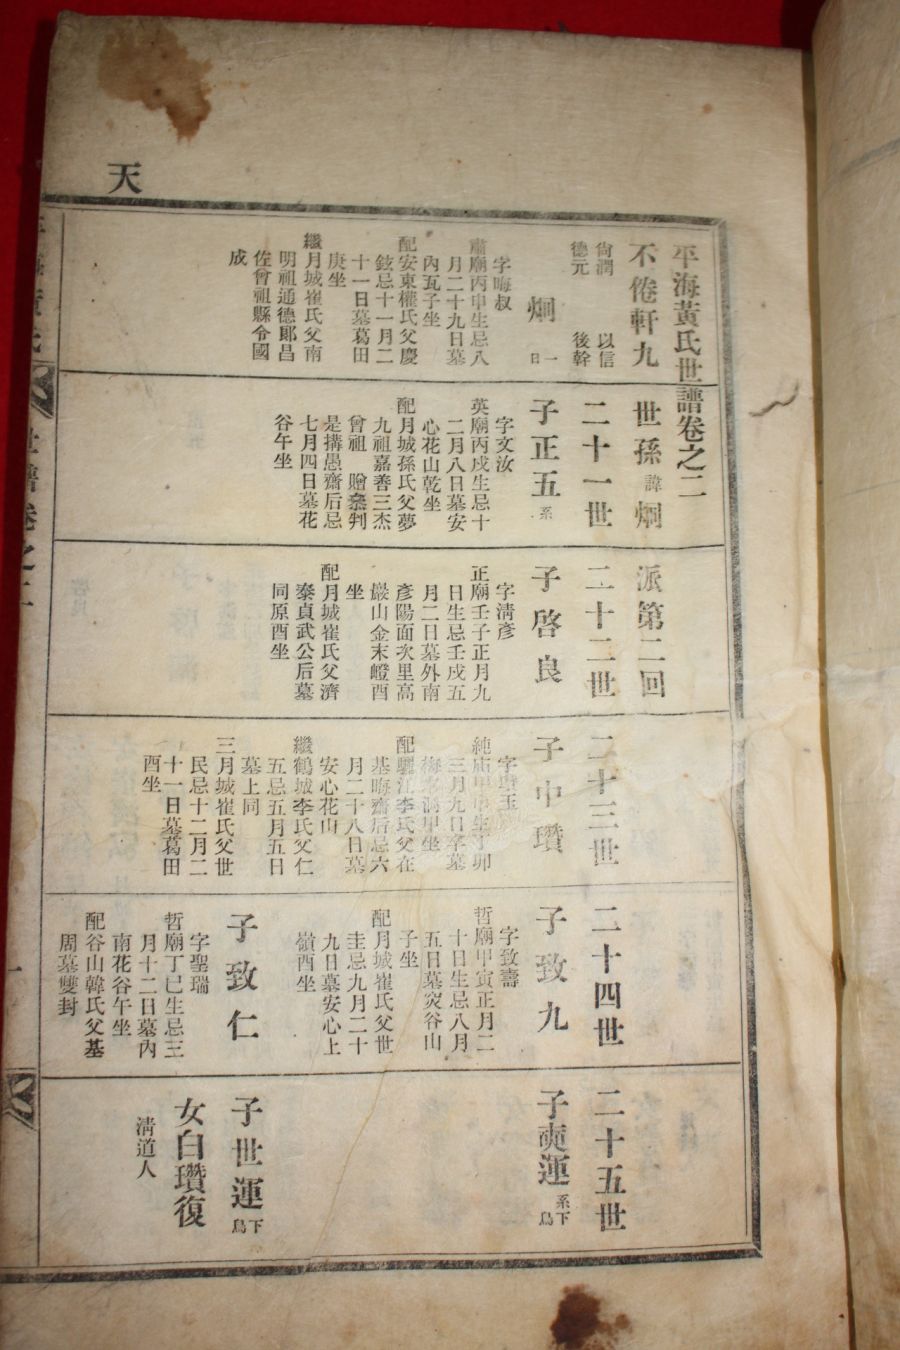 天
平海黃氏世譜卷之二
不倦軒九世孫諱炯派第二回
尙潤 以信
德元 後幹
炯 一
日
字晦叔
肅廟丙申生忌八
月二十九日墓
內瓦子坐
配安東權氏父慶
鉉忌十一月二
十一日墓葛田
庚坐
繼月城崔氏父南
明祖通德郞昌
佐曾祖縣令國
成
二十一世
子正五 系
字文汝
英廟丙戌生忌十
二月八日墓安
心花山乾坐
配月城孫氏父夢
九祖嘉善三杰
曾祖 贈叅判
是搆愚齋后忌
七月四日墓花
谷午坐
二十二世
子啓良
字淸彥
正廟壬子正月九
日生忌壬戌五
月二日墓外南
彥陽面次里高
巖山金末嶝酉
坐
配月城崔氏父濟
泰貞武公后墓
同原酉坐
二十三世
子中瓚
純庙甲申生丁卯
三月九日卒墓
洞甲坐
配驪江李氏父在
基晦齋后忌六
月二十八日墓
安心花山
繼鶴城李氏父仁
五忌五月五日
墓上同
三月城崔氏父世
民忌十二月二
十一日墓葛田
酉坐
二十四世
子致九
字致壽
哲廟甲寅正月二
十日生忌八月
五日墓灾谷山
子坐
配月城崔氏父世
圭忌九月二十
九日墓安心上
嶺酉坐
子致仁
字聖瑞
哲廟丁巳生忌三
月十二日墓內
南花谷午坐
配谷山韓氏父基
周墓雙封
二十五世
子奭運 系下
鳥
子世運 下
鳥
女白瓚復
淸道人